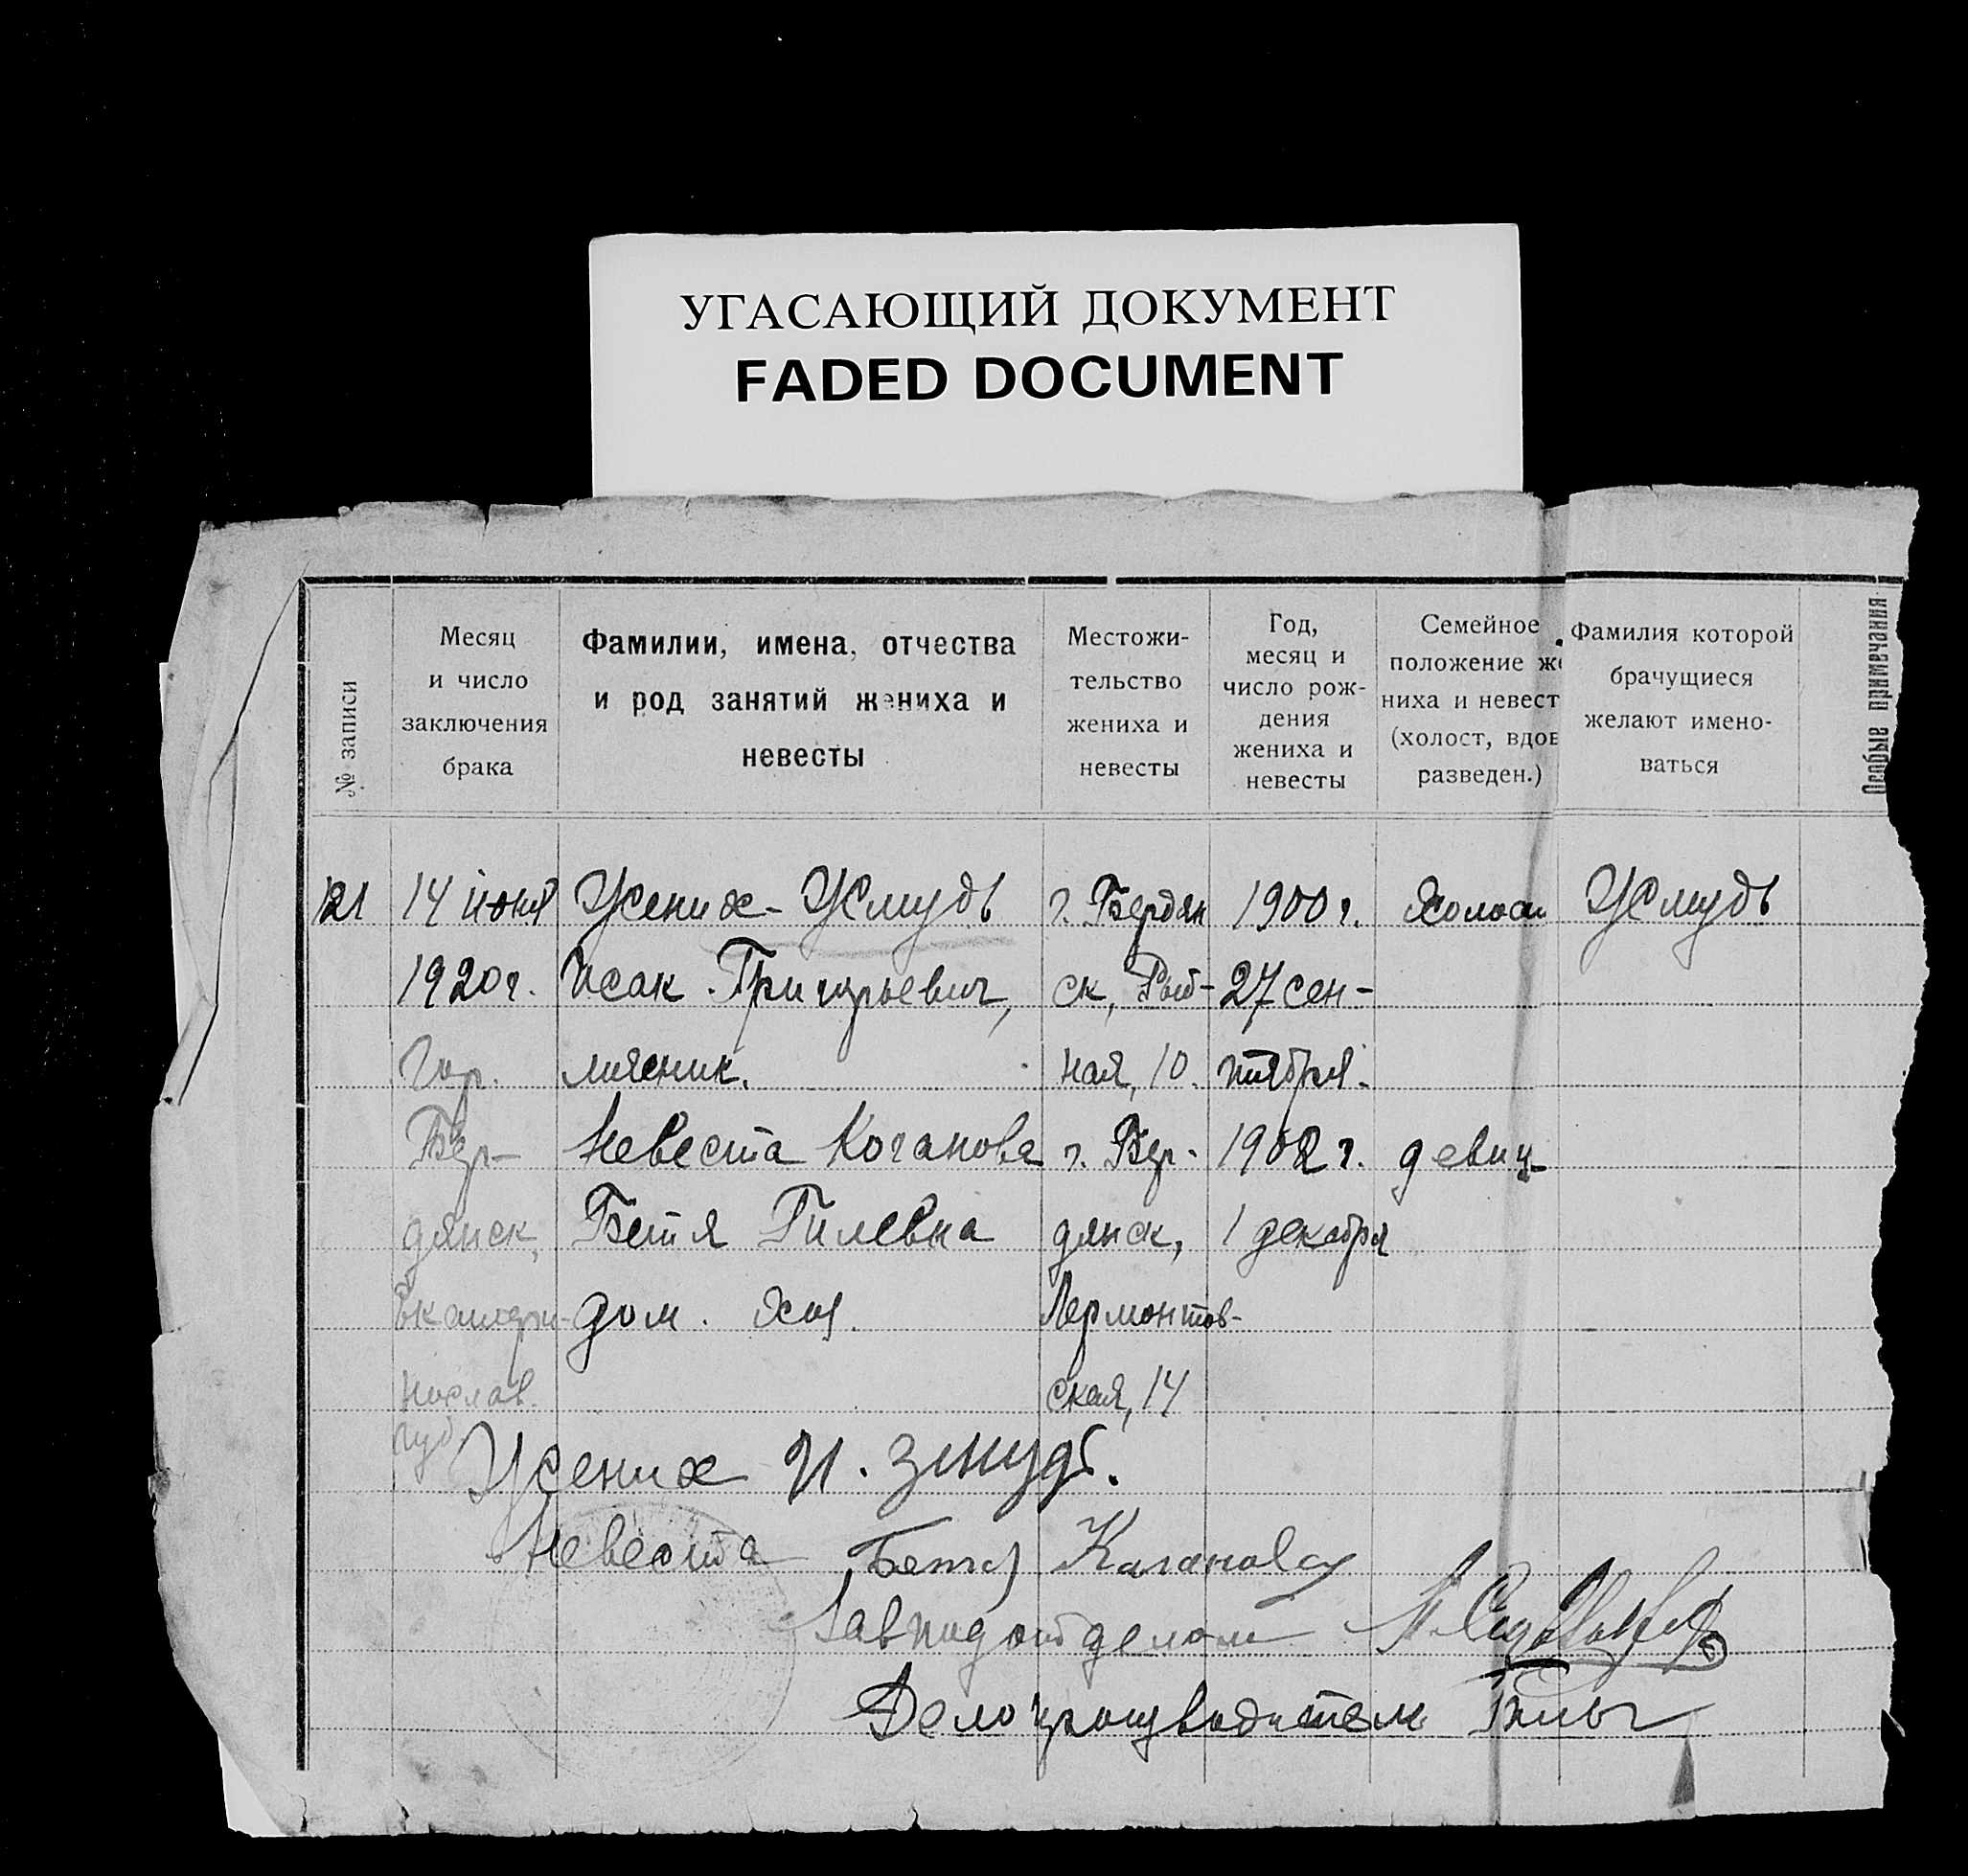 УГАСАЮЩИЙ ДОКУМЕНТ
FADED DOCUMENT
№ записи
Месяц
и число
заключения
брака
Фамилии, имена, отчества
и род занятий жениха и
невесты
Местожи-
тельство
жениха и
невесты
Год,
месяц и
число рож-
дения
жениха и
невесты
Семейное
положение же
ниха и невест
(холост, вдов
разведен.)
Фамилия которой
брачущиеся
желают имено-
ваться
Особые примечания
121
14 июня
1920 г.
Гор.
Бер-
дянск,
Екатери-
нослав.
губ.
Жених - Жмудь
Исак Григорьевич,
мясник.
Невеста Коганова
Бетя Гилевна
дом. хоз.
г. Бердян
ск, Рыб-
ная, 10.
г. Бер-
дянск,
Лермонтов-
ская, 14
1900 г.
27 сен-
тября.
1902 г.
1 декабря
холост
девиц
Жмудь
Жених И. Змудь.
Невеста Бетя Каганова
Завподотделом
Делопроизводитель